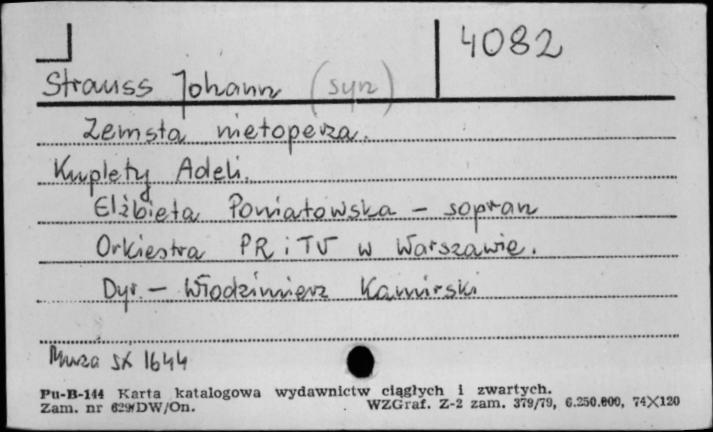 4082
Strauss Johann (syn)
Zemsta nietoperza.
Kuplety Adeli.
Elżbieta Poniatowska – sopran
Orkiestra PR i TV w Warszawie.
Dyr. – Włodzimierz Kamirski
Muza SX 1644
Pu-B-144 Karta katalogowa wydawnictw ciągłych i zwartych.
Zam. nr 629/DW/On. WZGraf. Z-2 zam. 379/79, 6.250.000, 74X120